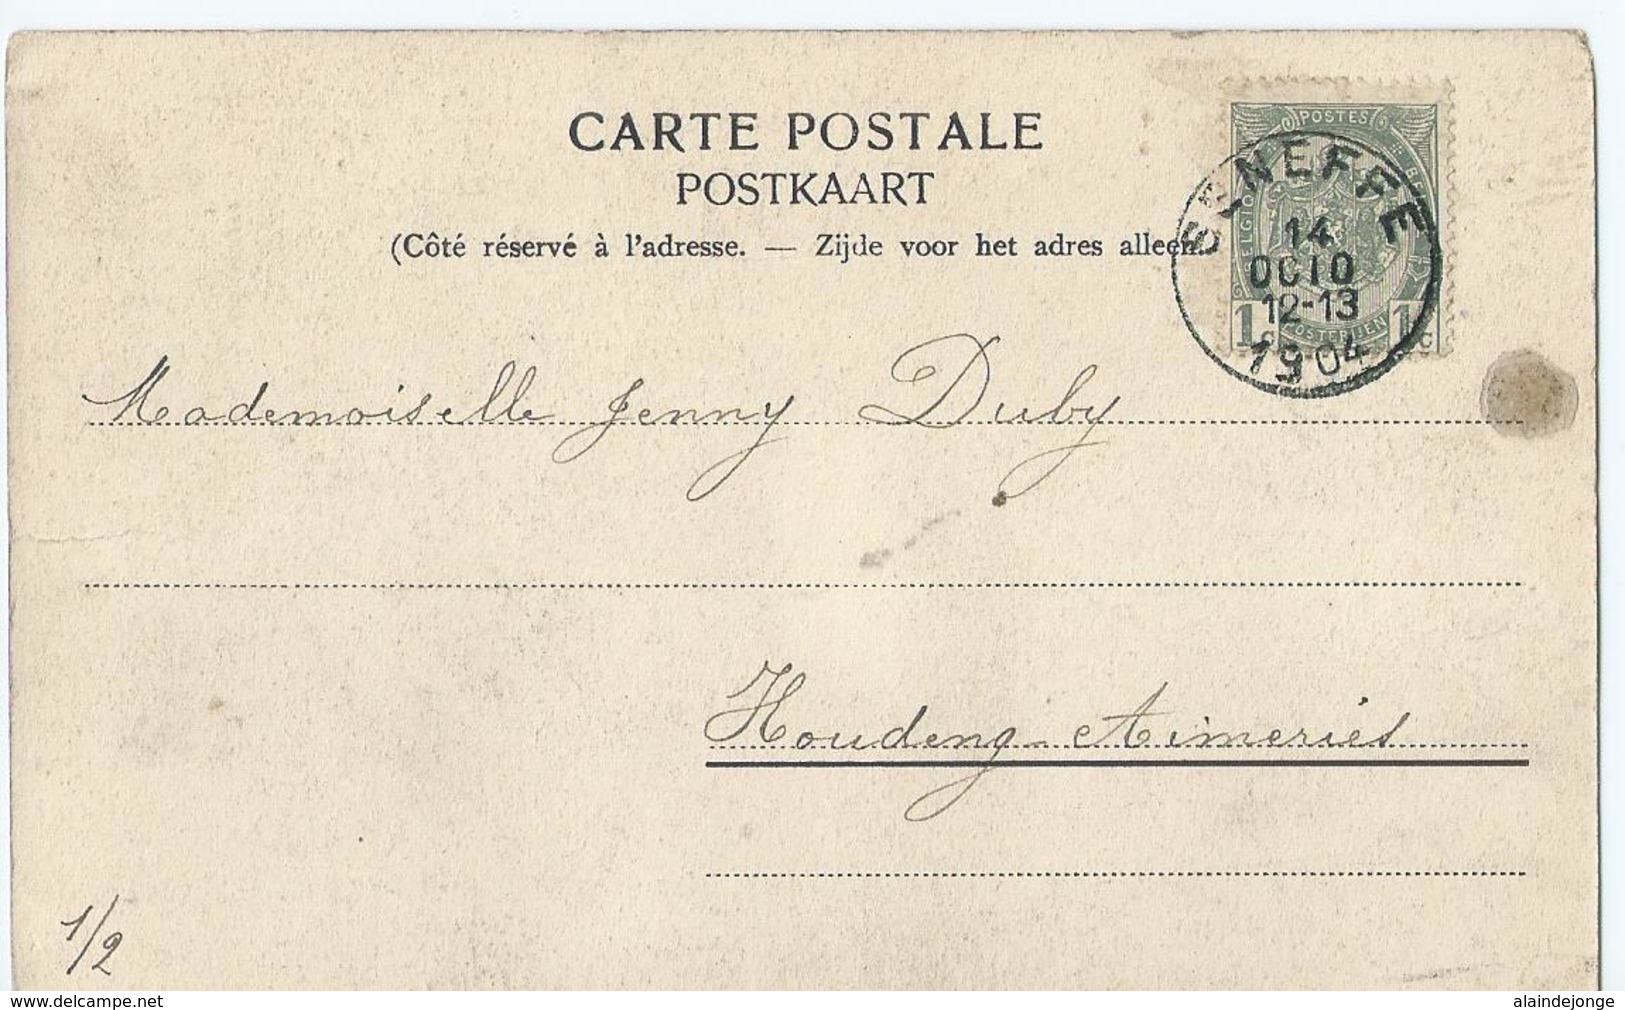 CARTE POSTALE
POSTKAART
(Côté réservé à l'adresse. — Zijde voor het adres alleen.
POSTES
SENEFFE
14
OCTO
12-13
1904
1 c 1 c
POSTERIJEN
Mademoiselle Jenny Duby
Houdeng-Aimeries
1/2
www.delcampe.net
alaindejonge